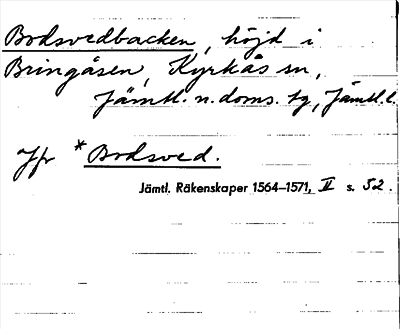 Bodsvedbacken, höjd i
Bringåsen, Kyrkås sn,
Jämtl. n. doms. tg, Jämtl. l.
Jfr *Bodsved.
Jämtl. Räkenskaper 1564–1571, II s. 52.